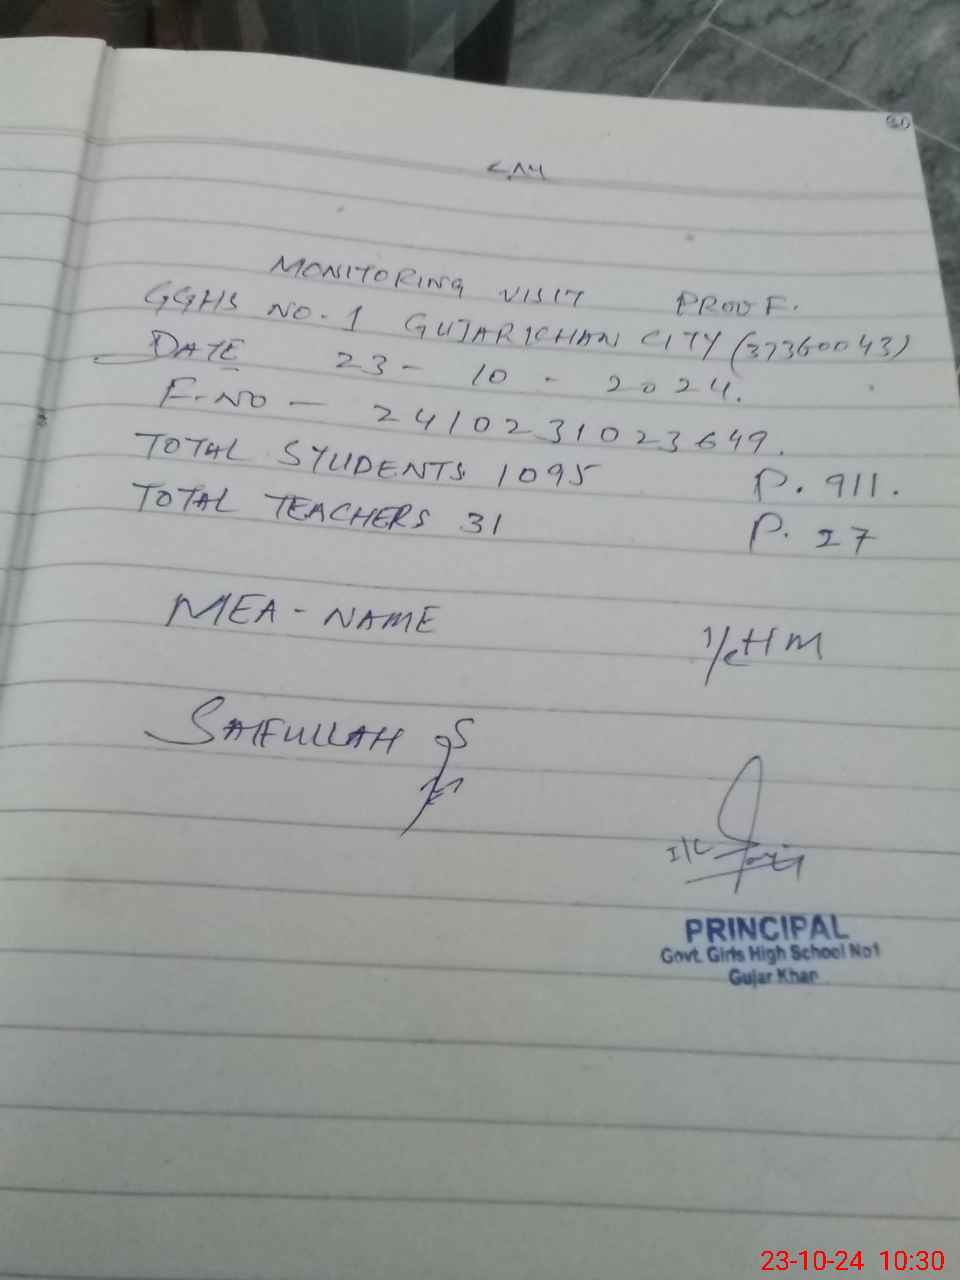 30
MONITORING VISIT PROOF.
GGHS NO. 1 GUJARKHAN CITY (37360043)
DATE 23 - 10 - 2024.
F.NO - 2410231023649.
TOTAL STUDENTS 1095 P. 911.
TOTAL TEACHERS 31 P. 27
MEA - NAME
I/C HM
SAIFULLAH
I/C
PRINCIPAL
Govt. Girls High School No1
Gujar Khan
23-10-24 10:30